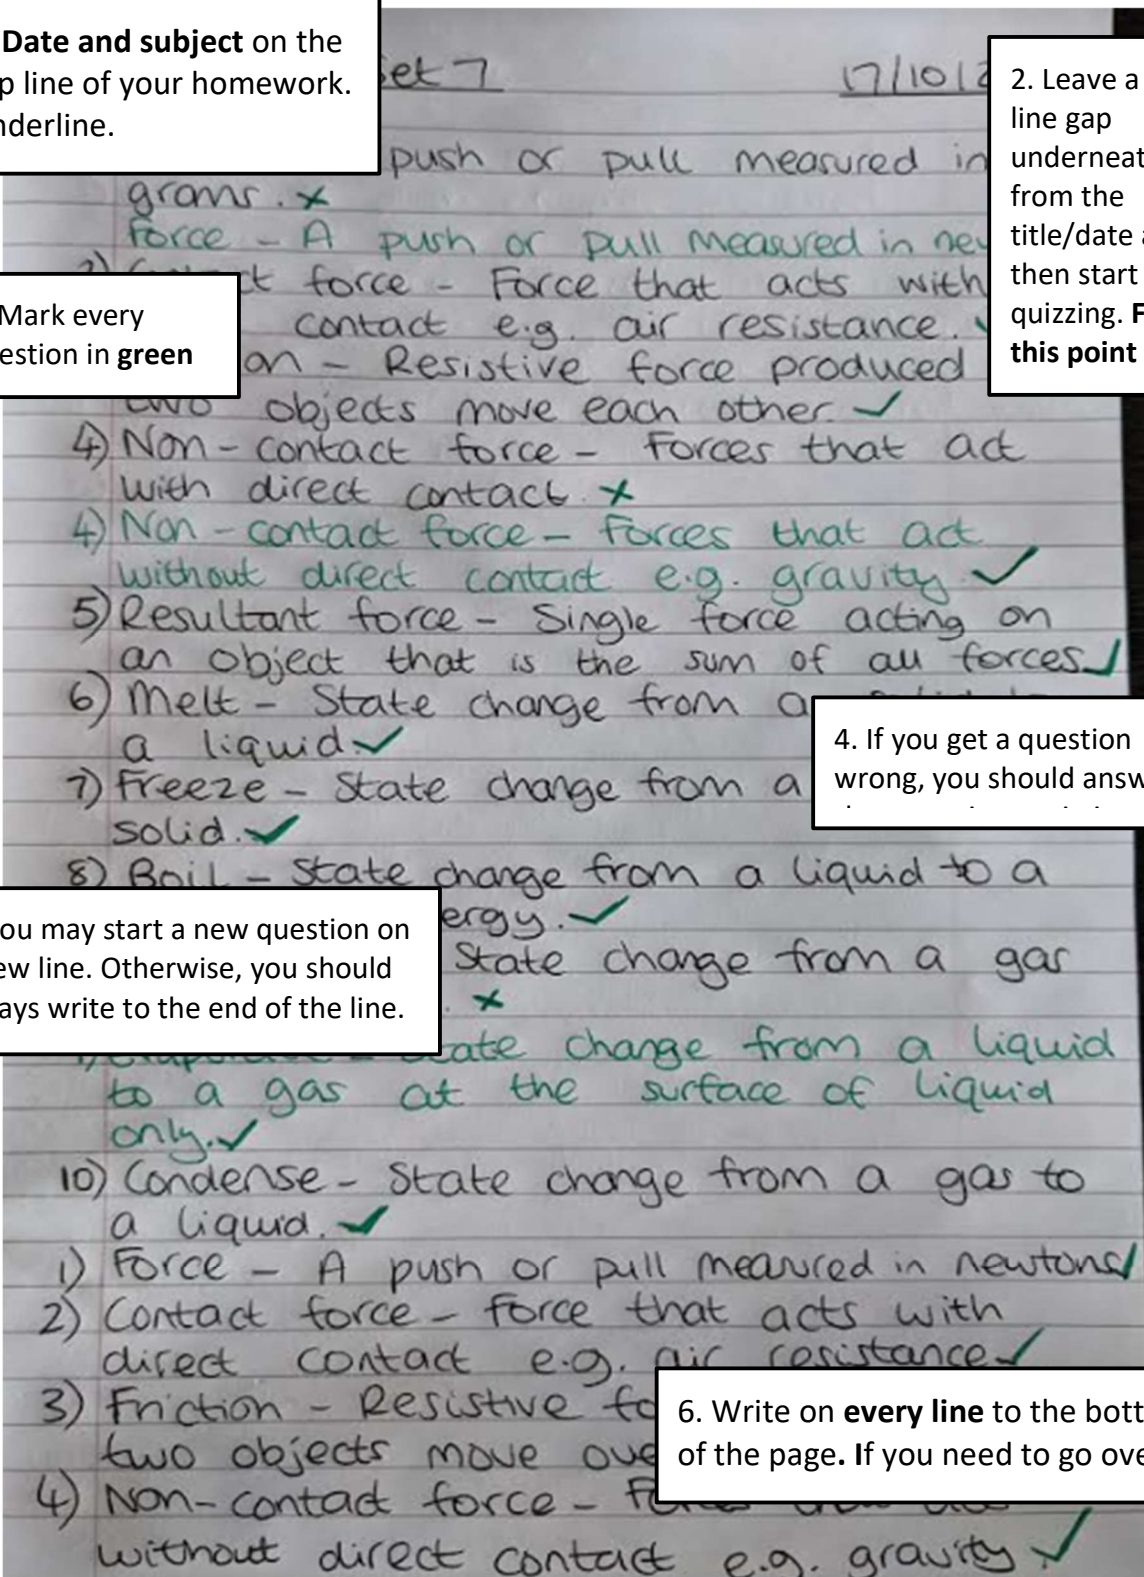 Date and subject on the
line of your homework.
nderline.
Set 7
17/10/2
2. Leave a
line gap
underneat
from the
title/date
then start
quizzing. F
this point
push or pull measured in
grams. ×
Force - A push or pull measured in new
Mark every
estion in green
force - Force that acts with
contact e.g. air resistance.
on - Resistive force produced
two objects move each other. ✓
4) Non-contact force - Forces that act
with direct contact. ×
4) Non-contact force - Forces that act
without direct contact e.g. gravity ✓
5) Resultant force - Single force acting on
an object that is the sum of all forces ✓
6) Melt - State change from a
a liquid. ✓
4. If you get a question
wrong, you should answ
7) Freeze - State change from a
solid. ✓
8) Boil - State change from a liquid to a
ergy. ✓
ou may start a new question on
ew line. Otherwise, you should
ays write to the end of the line.
State change from a gas
×
9) Evaporate - State change from a liquid
to a gas at the surface of liquid
only. ✓
10) Condense - State change from a gas to
a liquid. ✓
1) Force - A push or pull measured in newtons ✓
2) Contact force - Force that acts with
direct contact e.g. air resistance ✓
3) Friction - Resistive fo
two objects move ove
6. Write on every line to the bott
of the page. If you need to go ove
4) Non-contact force -
without direct contact e.g. gravity ✓